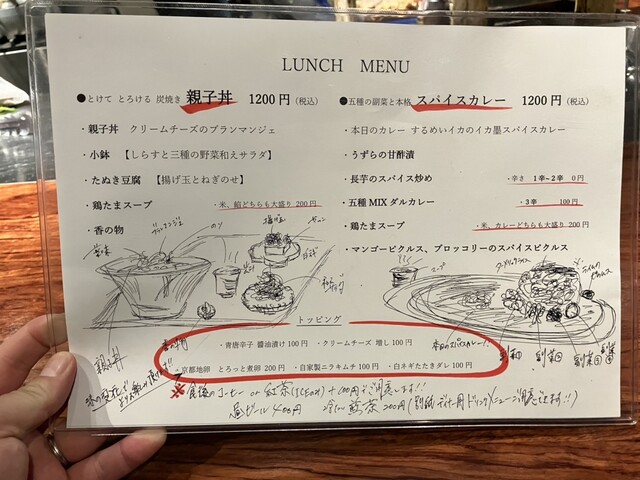 LUNCH MENU
●とけて とろける 炭焼き 親子丼 1200円（税込）
・親子丼 クリームチーズのブランマンジェ
・小鉢 【しらすと三種の野菜和えサラダ】
・たぬき豆腐 【揚げ玉とねぎのせ】
・鶏たまスープ ・米、餡どちらも大盛り 200円
・香の物
●五種の副菜と本格 スパイスカレー 1200円（税込）
・本日のカレー するめいイカのイカ墨スパイスカレー
・うずらの甘酢漬
・長芋のスパイス炒め ・辛さ 1辛~2辛 0円
・五種MIXダルカレー ・3辛 100円
・鶏たまスープ ・米、カレーどちらも大盛り 200円
・マンゴーピクルス、ブロッコリーのスパイスピクルス
ブランマンジェ
のり
揚げ玉
スープ
香の物
親子丼
本日のスパイスカレー!
副菜
副菜
副菜
副菜
トッピング
・青唐辛子 醤油漬け 100円 ・クリームチーズ 増し 100円
京都地卵 とろっと煮卵 200円 ・自家製ニラキムチ 100円 ・白ネギたたきダレ 100円
※食後のコーヒー or 紅茶(ICE OK) +100円でご用意します!!
昼ビール 400円 200円(別紙ディナー用ドリンクメニューご用意できます!!)